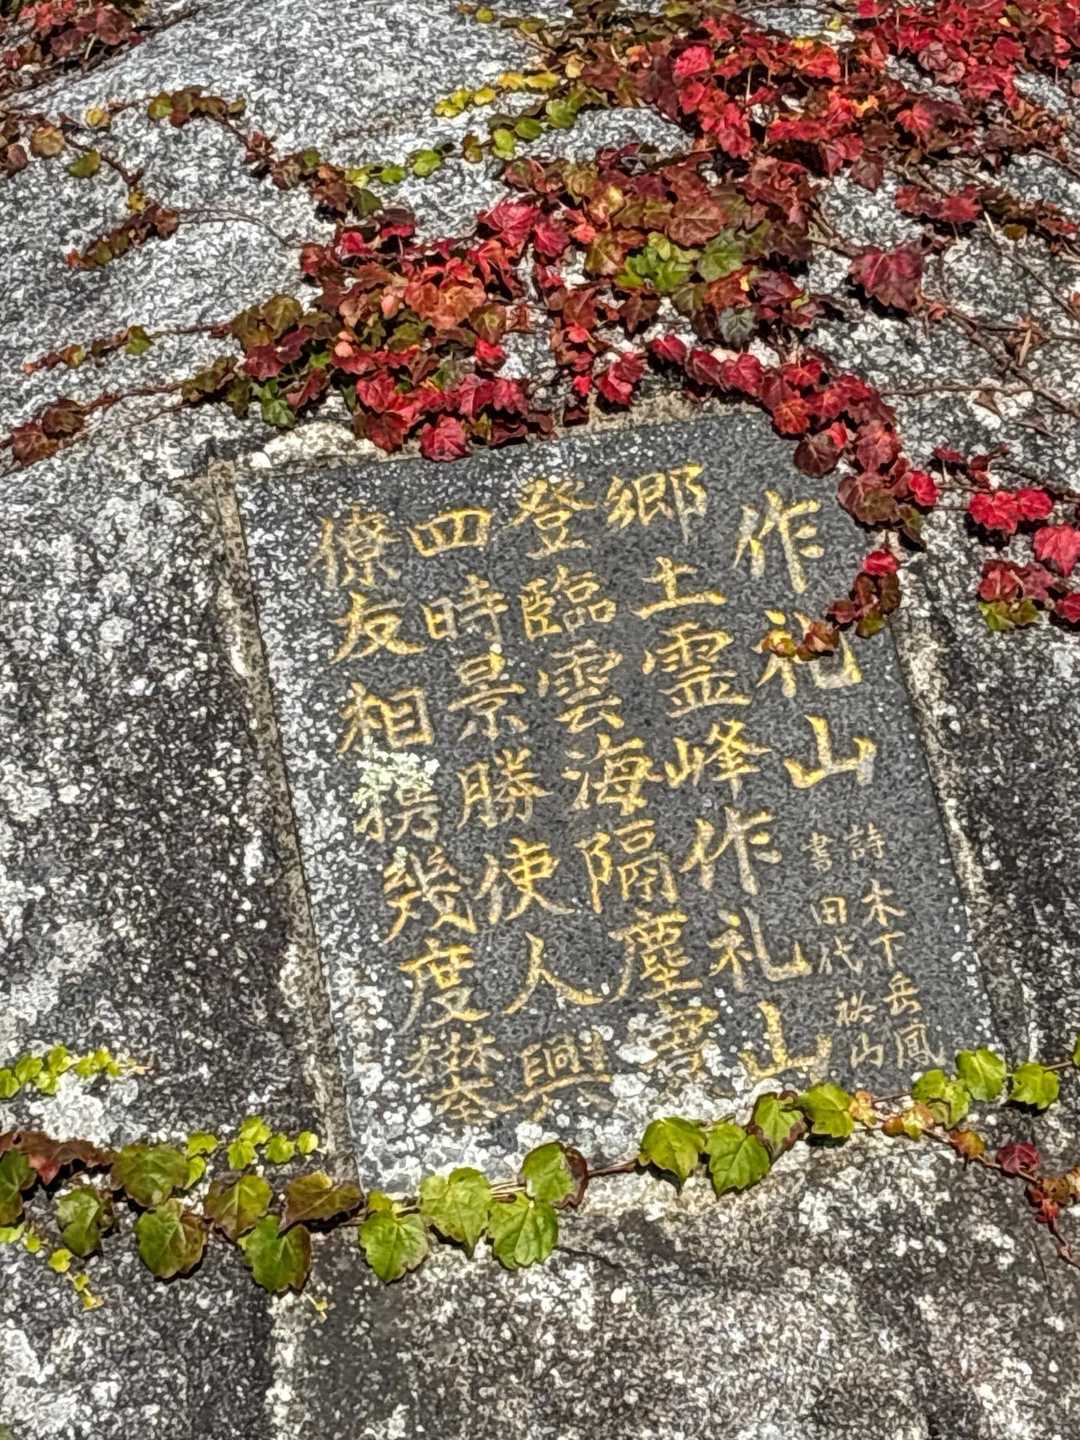 作礼山
詩 木下岳鳳
書 田代裕山
郷土霊峰作礼山
登臨雲海隔塵寰
四時景勝使人興
僚友相携幾度攀